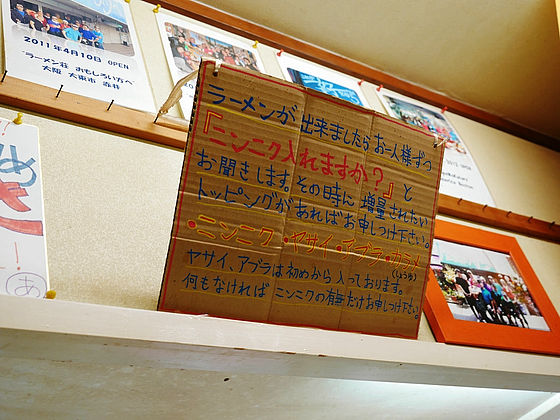 2011年4月10日 OPEN
"ラーメン荘 おもしろい方へ
大阪 大東市 赤井
ラーメンが出来ましたらお一人様ずつ
『ニンニク入れますか？』と
お聞きします。その時に増量されたい
トッピングがあればお申しつけ下さい。
・ニンニク・ヤサイ・アブラ・カラメ
(しょうゆ)
ヤサイ、アブラは初めから入っております。
何もなければニンニクの有無だけお申しつけ下さい。
め
あ